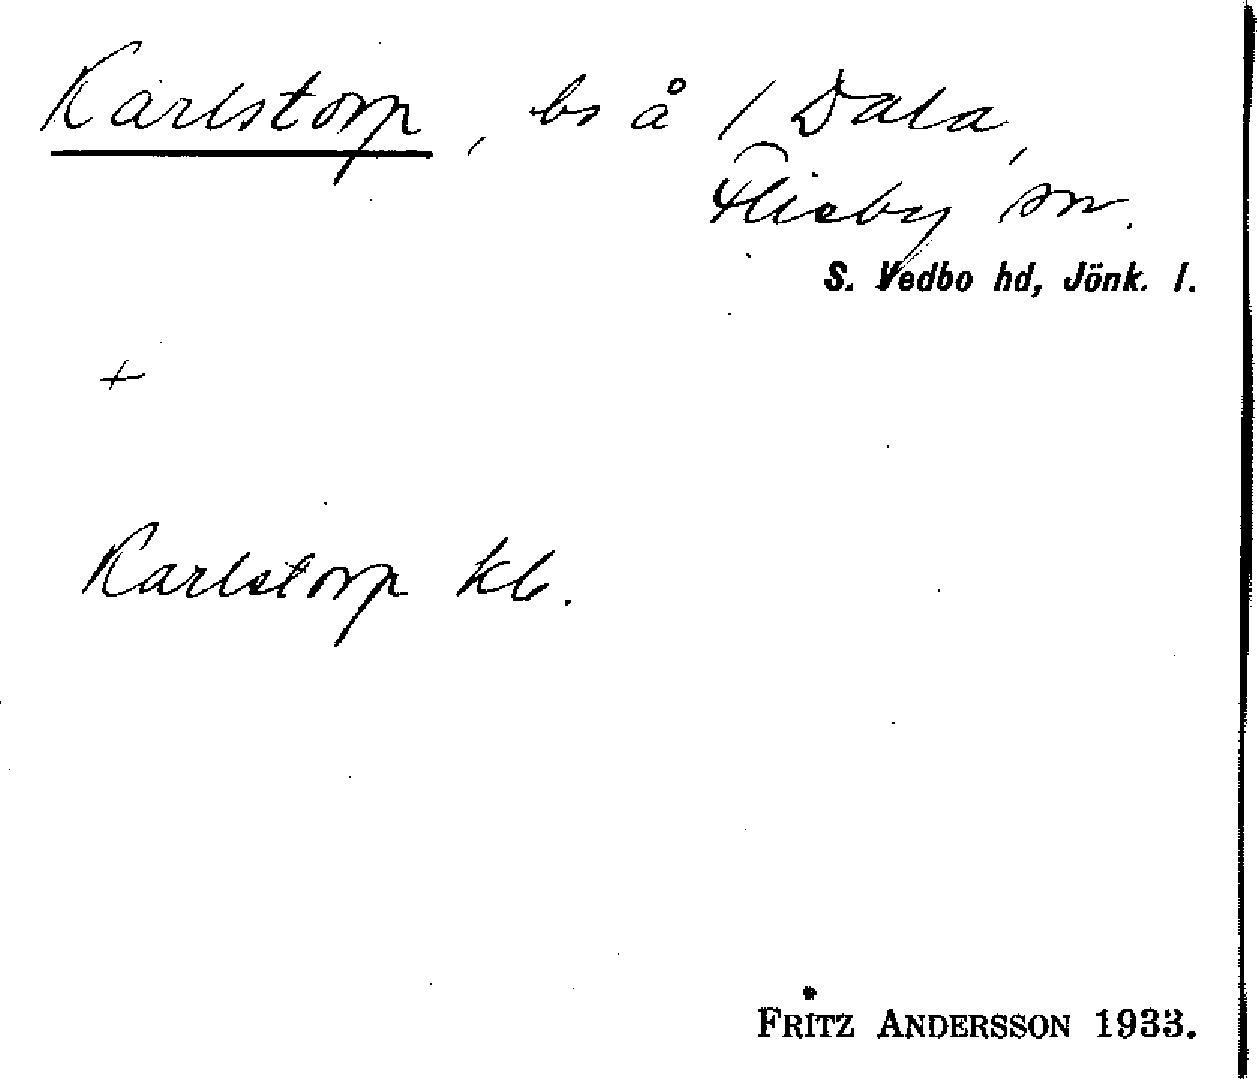 Karlstorp, bs å 1 Dala,
Flisby sn.
S. Vedbo hd, Jönk. l.
+
Karlstorp kb.
FRITZ ANDERSSON 1933.